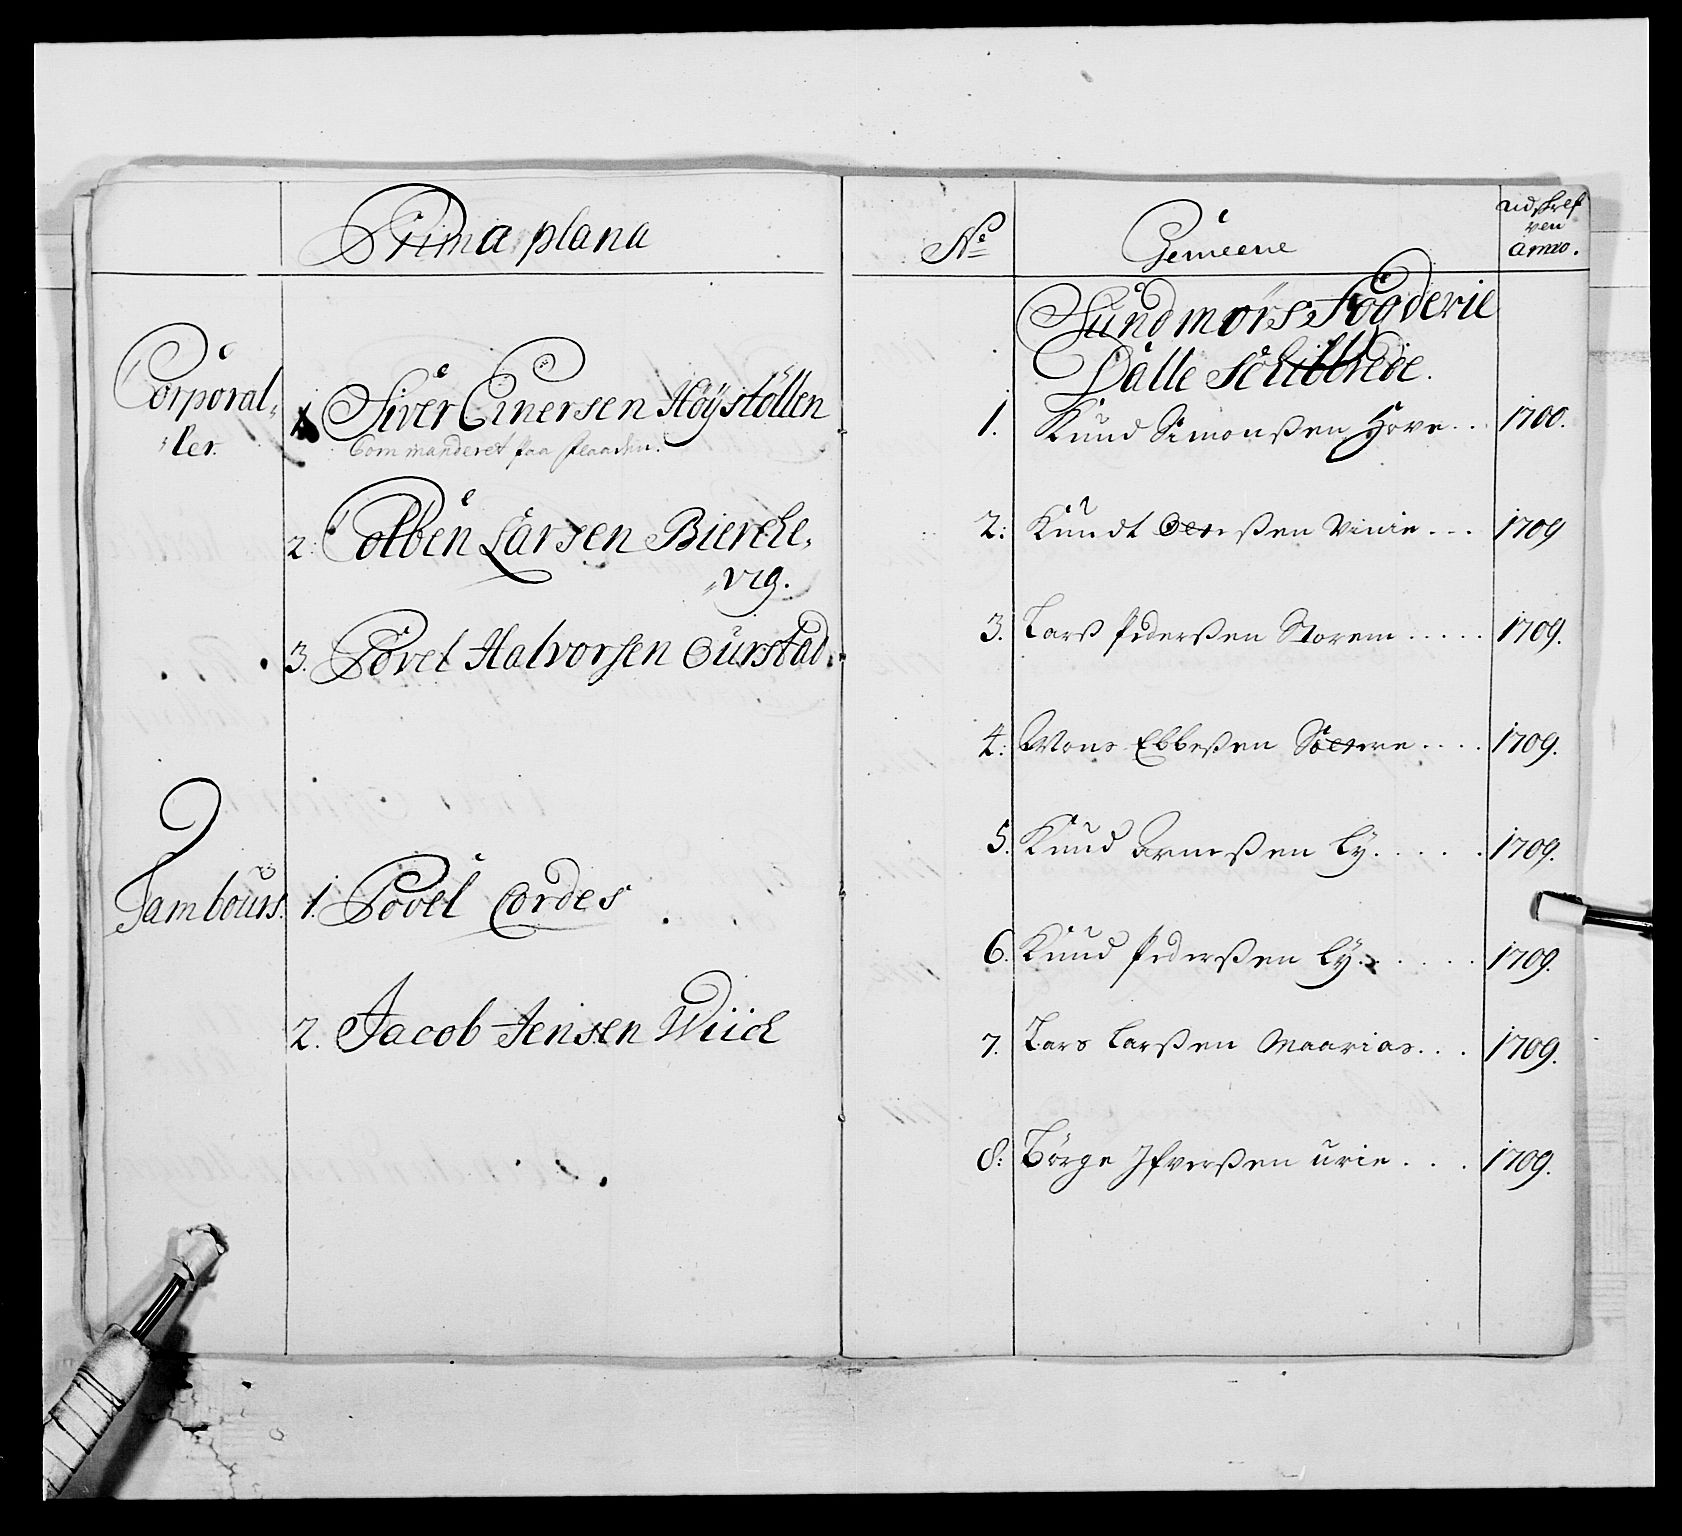 Prima plana
Corporal„
„ler.
1 Siver Einersen Höÿstöllen
Commanderet paa
2. Colben Larsen Bierche„
„vig.
3. Povel Halvorsen Aurstad.
Tambours.
1. Povel Cordes
2. Jacob Jensen Wiich
No
Gemeene
udskref
ven
anno.
Sundmørs Fogderie
Dalle Schibbrede.
1. Knud Simonßen Hove . . 1700.
2: Knudt ßen Viuie . . . 1709
3. Larß Pederßen Storem . . . . . 1709.
4: Mons Ebbeßen . . . . 1709.
5. Knud Arneßen Ly . . . . . 1709.
6. Knud Pederßen Ly . . . . . . 1709.
7. Lars Larßen Maarias . . . 1709.
8: Børge Ifverßen Urie . . . 1709.